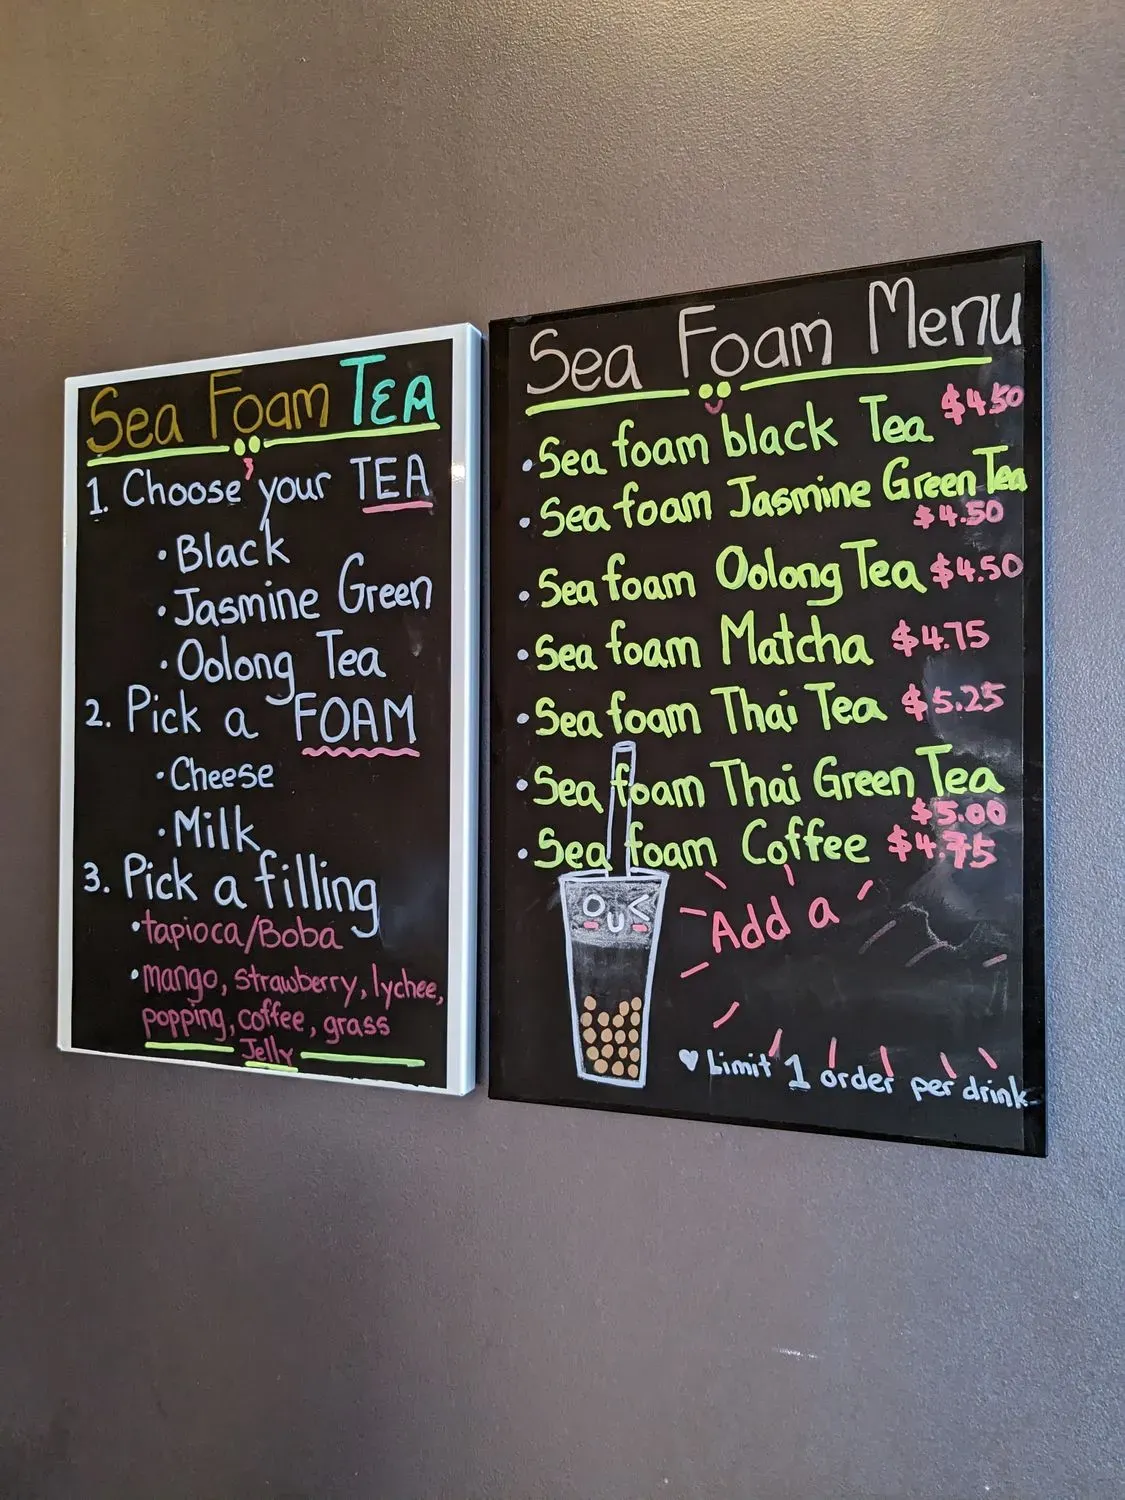 Sea Foam TEA
1. Choose your TEA
• Black
• Jasmine Green
• Oolong Tea
2. Pick a FOAM
• Cheese
• Milk
3. Pick a filling
• tapioca/Boba
• mango, strawberry, lychee,
popping, coffee, grass
Jelly
Sea Foam Menu
• Sea foam black Tea $4.50
• Sea foam Jasmine Green Tea
$4.50
• Sea foam Oolong Tea $4.50
• Sea foam Matcha $4.75
• Sea foam Thai Tea $5.25
• Sea foam Thai Green Tea
$5.00
• Sea foam Coffee $4.75
Add a
♥ Limit 1 order per drink